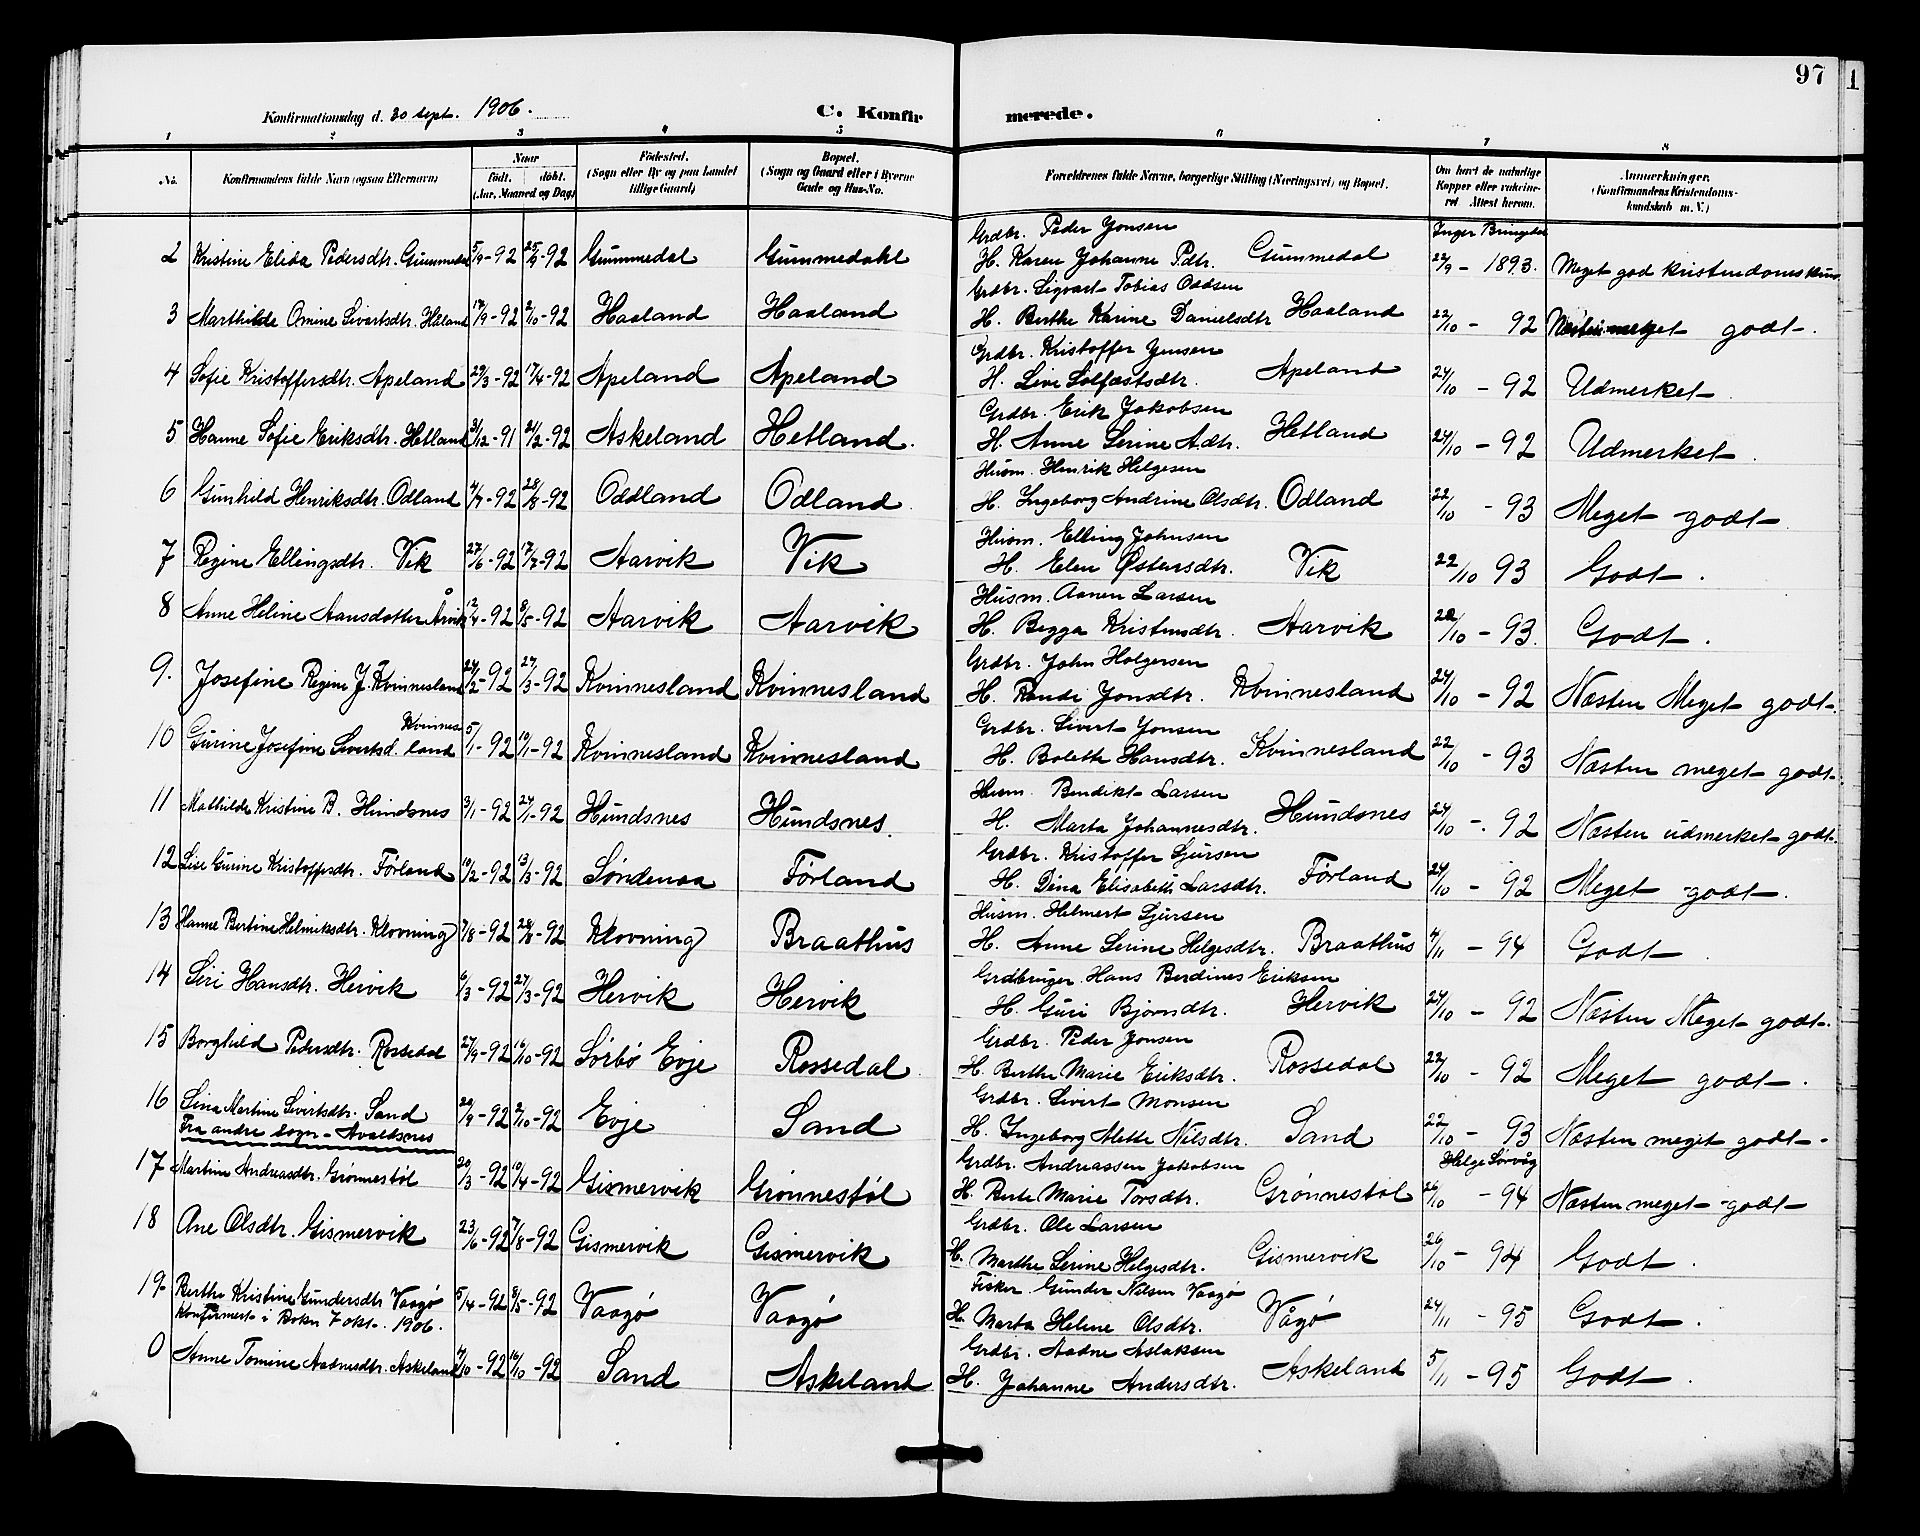 97
Konfirmationsdag d. 30 sept. 1906.
C. Konfirmerede.
1 2 3 4 5 6 7 8
No. Konfirmandens fulde Navn (ogsaa Efternavn) Naar födt. döbt. (Aar, Maaned og Dag) Födested. (Sogn eller By og paa Landet tillige Gaard) Bopæl. (Sogn og Gaard eller i Byerne Gade og Hus-No. Forældrenes fulde Navne, borgerlige Stilling (Næringsvei) og Bopæl. Om havt de naturlige Kopper eller vakcineret Attest herom. Anmærkninger. (Konfirmandens Kristendomskundskab m. V.)
Grdbr. Peder Jonsen Inger Bringedal
2 Kristine Elida Pedersdtr. Gummedal 5/9-92 25/9-92 Gummedal Gummedahl H. Karen Johanne Pdtr. Gummedal 27/9-1893. Meget god kristendomskun
Grdbr. Sigvart Tobias Oddsen
3 Marthilde Omine Sivertsdtr. Håland 17/9-92 2/10-92 Haaland Haaland H. Berthe Karine Danielsdtr Haaland 22/10-92 meget godt.
Grdbr. Kristoffer Jensen
4 Sofie Kristoffersdtr. Apeland 29/3-92 17/4-92 Apeland Apeland H. Live Solfæstsdtr. Apeland 24/10-92 Udmerket
Grdbr. Erik Jakobsen
5 Hanne Sofie Eriksdtr. Hetland 31/12-91 21/2-92 Askeland Hetland. H. Anne Serine Adtr. Hetland 24/10-92 Udmerket.
Husm. Henrik Helgesen
6 Gunhild Henriksdtr. Odland 4/7-92 28/8-92 Oddland Odland. H. Ingeborg Andrine Olsdtr. Odland 22/10-93 Meget godt
Husm. Elling Johnsen
7 Regine Ellingsdtr. Vik 27/6-92 17/7-92 Aarvik Vik H. Elen Østensdtr. Vik 22/10 93 Godt.
Husm. Aanen Larsen
8 Anne Heline Aansdatter Årvik 12/4-92 8/5-92 Aarvik Aarvik H. Begga Kristensdtr. Aarvik 22/10-93. Godt.
Grdbr. John Holgersen
9. Josefine Regine J. Kvinnesland 24/2-92 27/3-92 Kvinnesland Kvinnesland H. Randi Jonsdtr. Kvinnesland 24/10-92 Næsten Meget godt.
Grdbr. Sivert Jonsen
10 Gurine Josefine Sivertsd. Kvinnesland 5/1-92 10/1-92 Kvinnesland Kvinnesland H. Bolette Hansdtr. Kvinnesland 22/10-93 Næsten meget godt.
Husm. Bendikt Larsen
11 Mathilde Kristine B. Hundsnes 3/1-92 24/1-92 Hundsnes Hundsnes. H. Marta Johannesdtr. Hundsnes 24/10-92 Næsten udmerket godt.
Grdbr. Kristoffer Sjursen
12 Lise Gurine Kristoffersdtr. Førland 10/2-92 13/3-92 Søndenaa Førland H. Dina Elisabeth Larsdtr. Førland 24/10-92 Meget godt.
Husm. Helmert Sjursen
13 Hanne Bertine Helmiksdtr. Klovning 7/8-92 28/8-92 Klovning Braathus H. Anne Serine Helgesdtr. Braathus 4/11-94 Godt.
Grdbruger. Hans Berdines Eriksen
14 Siri Hansdtr. Hervik 6/3-92 27/3-92 Hervik Hervik H. Guri Bjørndtr. Hervik 24/10-92 Næsten Meget godt.
Grdbr. Peder Jonsen
15 Borghild Pedersdtr. Rossedal 27/9-92 16/10-92 Sørbø Evje Rossedal. H. Berthe Marie Eriksdtr. Rossedal 22/10-92 Meget godt.
Grdbr. Sivert Monsen
16 Lina Martine Sivertsdtr. Sand 20/9-92 2/10-92 Evje Sand H. Ingeborg Mette Nilsdtr. Sand 22/10-93 Næsten meget godt.
Fra andre Sogn-Avaldsnes
Grdbr. Andreassen Jakobsen Helge Sørvåg
17 Martine Andreasdtr. Grønnestøl 20/3-92 10/4-92 Gismervik Grønnestøl H. Berte Marie Torsdtr. Grønnestøl 26/10-94 Næsten meget godt
Grdbr. Ole Larsen
18 Ane Olsdtr. Gismervik 23/6-92 7/8-92 Gismervik Gismervik H. Marthe Serine Helgesdtr. Gismervik 26/10-94 Godt.
Fisker Gunder Nilsen Vaagø
19 Berthe Kristine Gundersdtr Vaagø 5/4-92 8/5-92 Vaagø Vaagø H. Marta Helene Olsdtr. Vågø 24/11-95 Godt.
Konfirmert i Bokn 7 okt. 1906.
Grdbr. Aadne Aslaksen
0 Anne Tomine Aadnesdtr. Askeland 7/10-92 16/10-92 Sand Askeland H. Johanne Andersdtr. Askeland 5/11-95 Godt.